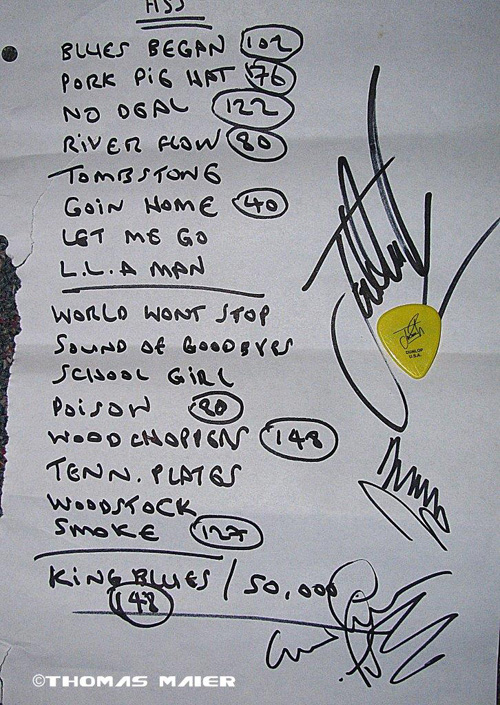 ASS
BLUES BEGAN 102
PORK PIG HAT 76
NO DEAL 122
RIVER FLOW 80
TOMBSTONE
GOIN HOME 40
LET ME GO
L.L.A MAN
WORLD WONT STOP
SOUND OF GOODBYES
SCHOOL GIRL
POISON 80
WOODCHOPPERS 148
TENN. PLATES
WOODSTOCK
SMOKE 127
KING BLUES / 50,000
148
DUNLOP
U.S.A.
©THOMAS MAIER